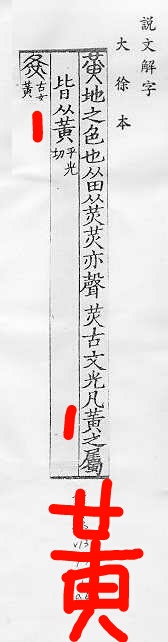 說文解字
大徐本
黃地之色也从田从炗炗亦聲炗古文光凡黃之屬
皆从黃乎光
切
古文
黃
黃